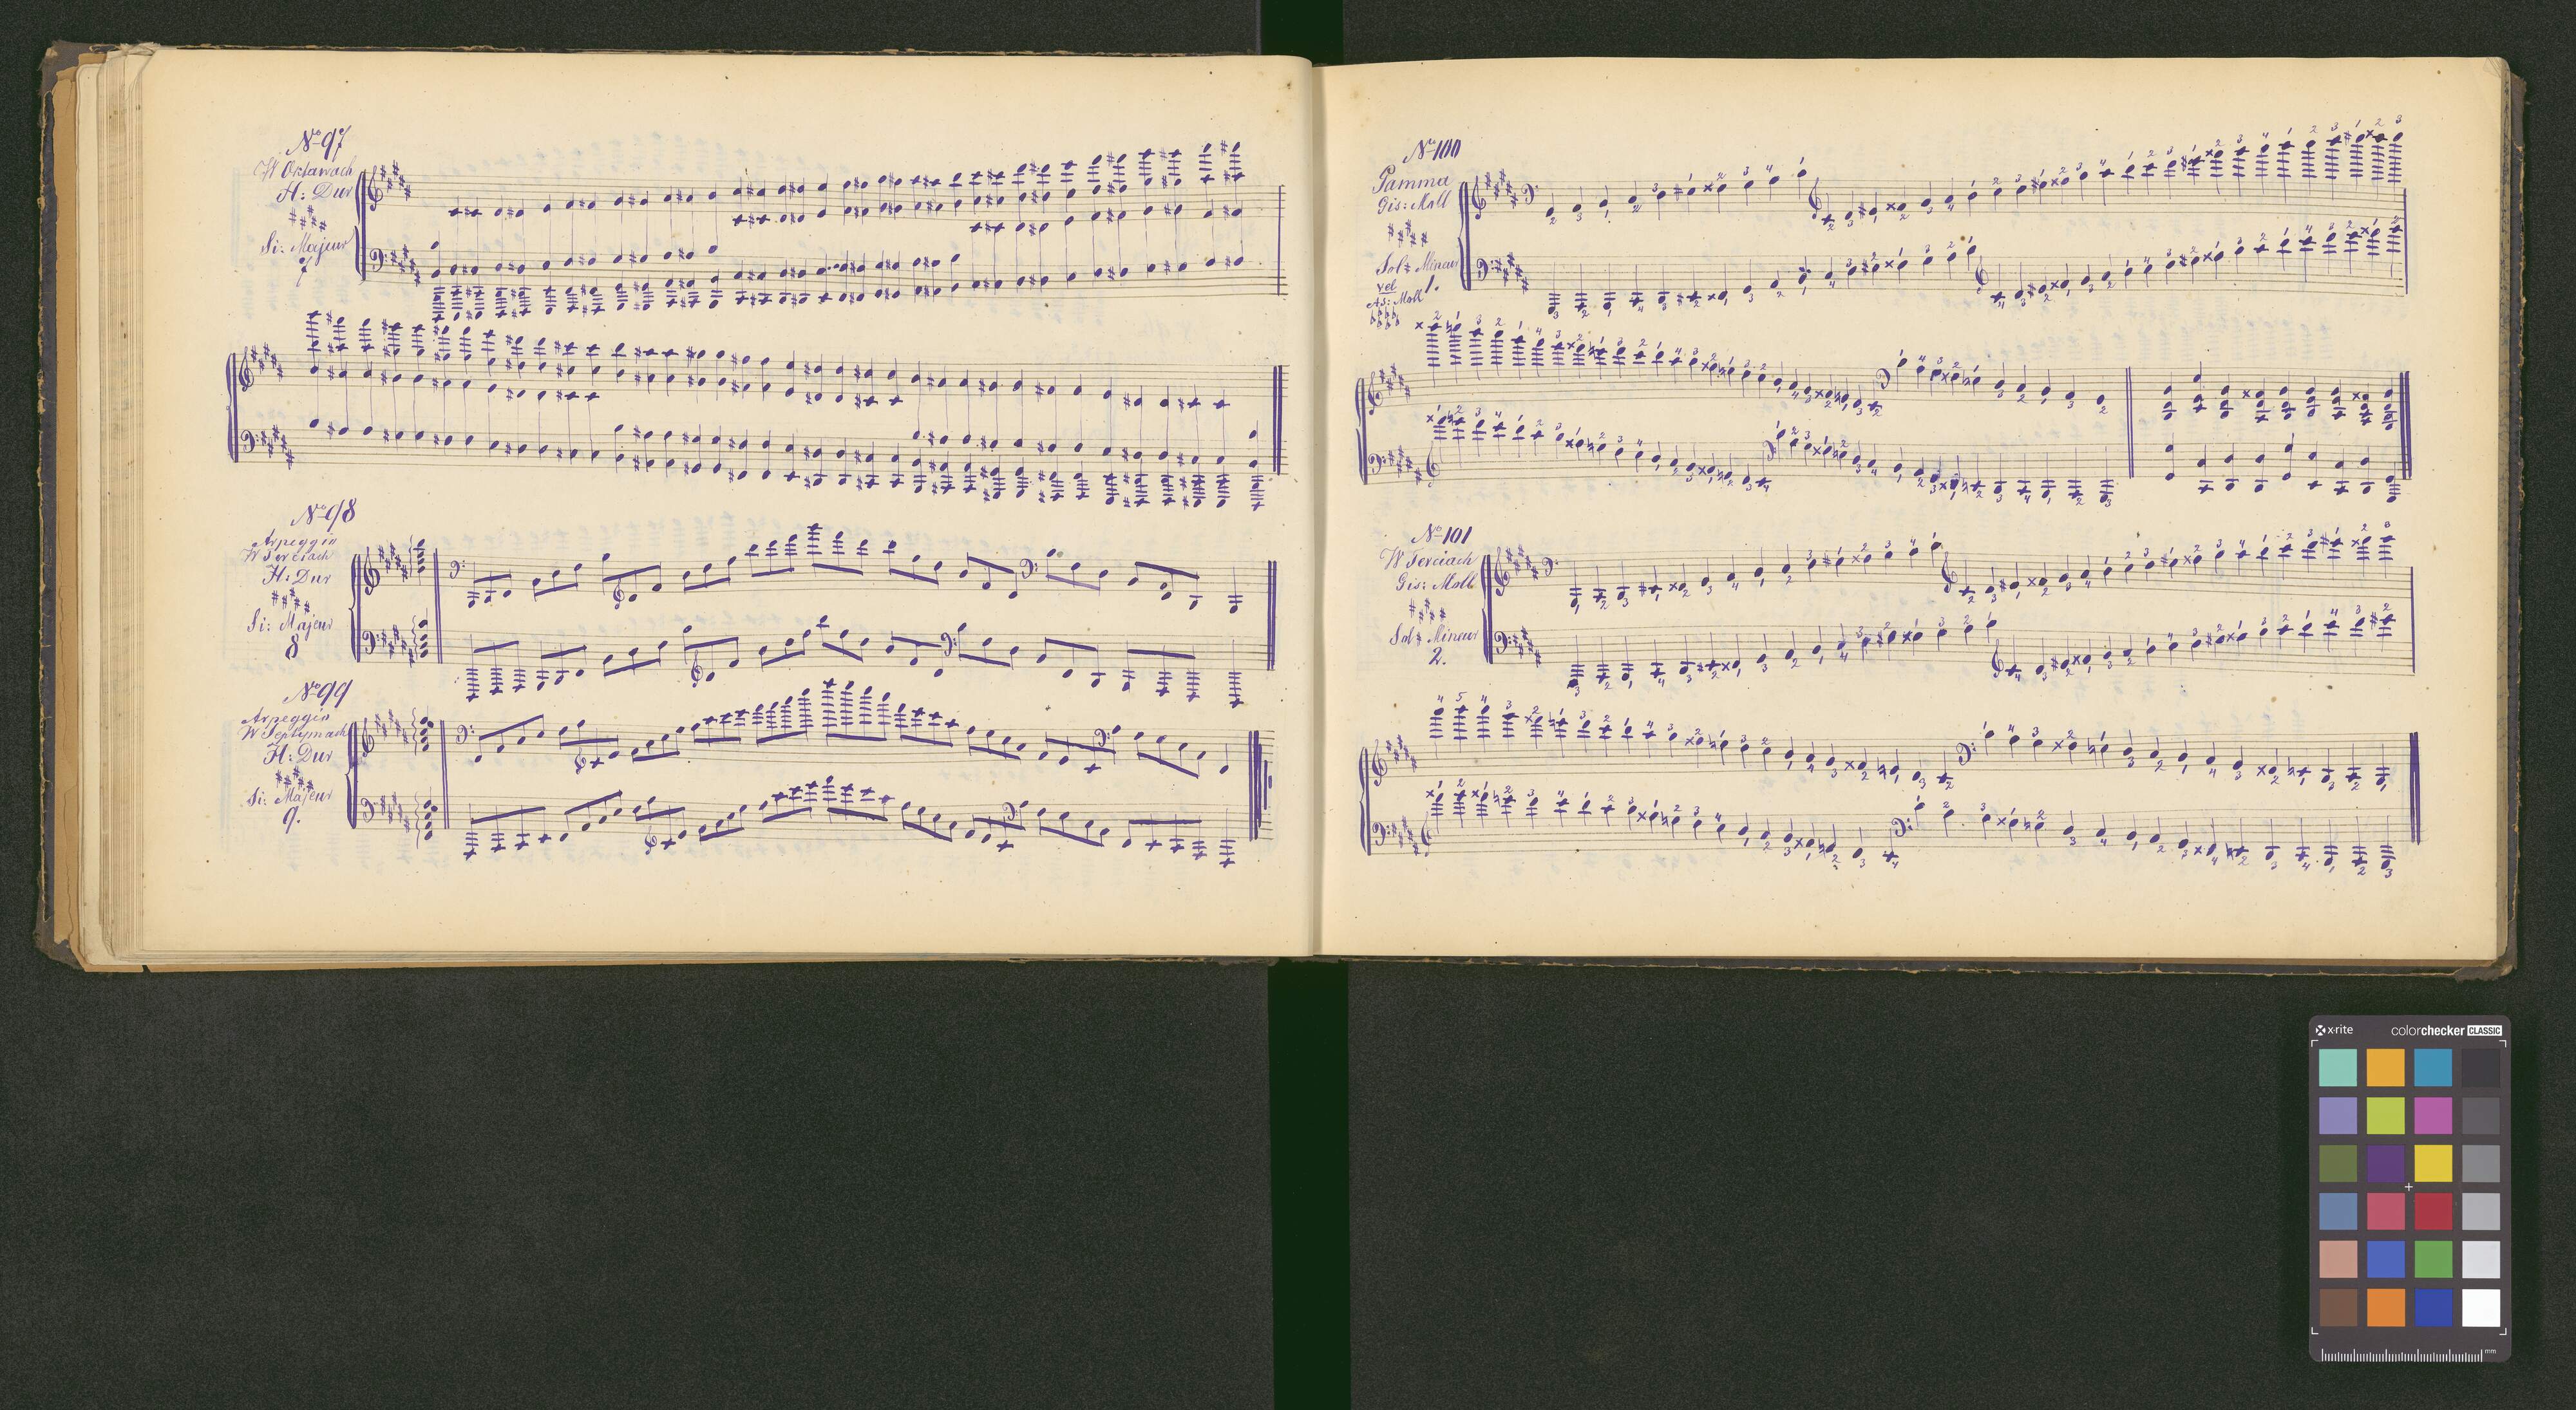 No 97
W Oktawach
H: Dur
Si: Majeur
7
No 98
Arpeggio
W Terciach
H: Dur
Si: Majeur
8
No 99
Arpeggio
W Septymach
H: Dur
Si: Majeur
9.
No 100
Gamma
Gis: Moll
Sol# Mineur
vel 1.
As: Moll
No 101
W Terciach
Gis: Moll
Sol# Mineur
2.
x-rite
colorchecker CLASSIC
mm